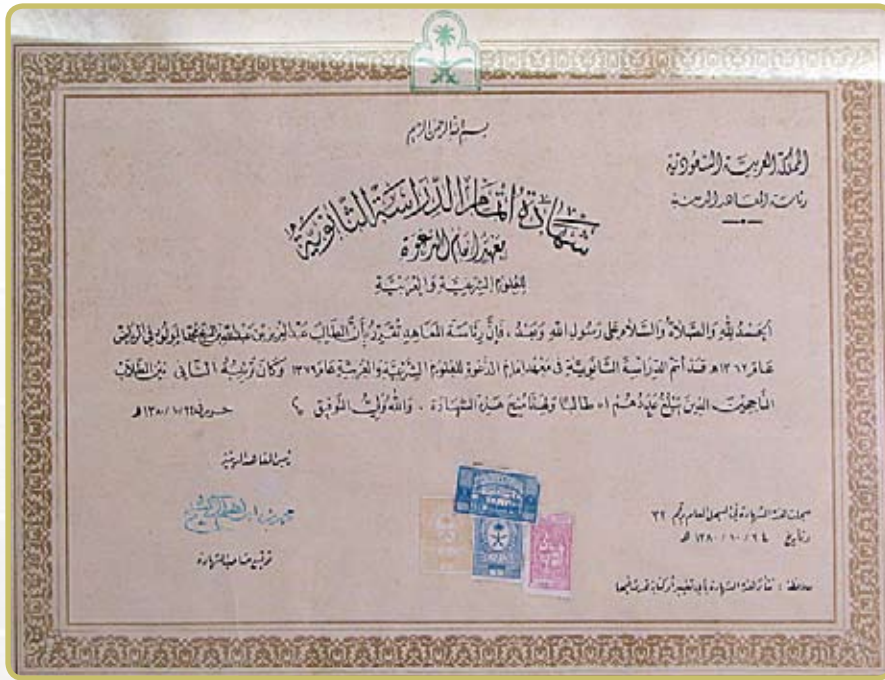 بسم الله الرحمن الرحيم
المملكة العربية السعودية
رئاسة المعاهد الدينية
شهادة اتمام الدراسة الثانوية
معهد امام الدعوة
للعلوم الشرعية والعربية
الحمد لله والصلاة والسلام على رسول الله وبعد ، فإن رئاسة المعاهد تقرر بأن الطالب عبد العزيز بن عبدالله بن المولود في الرياض
عام ١٣٦٢ه قد أتم الدراسة الثانوية في معهد امام الدعوة للعلوم الشرعية والعربية عام ١٣٧٩ وكان ترتيبه الثاني بين الطلاب
الناجحين الذين بلغ عددهم طالبا ولهذا منح هذه الشهادة . والله ولي التوفيق حرر في
رئيس المعاهد الدينية
سجلت هذه الشهادة في السجل العام برقم ٣٢
وتاريخ ٢٤ / ١٠ / ١٣٨٠ ه
توقيع صاحب الشهادة
ملاحظة : تتأثر هذه الشهادة بأي تغيير أو كتابة فيها